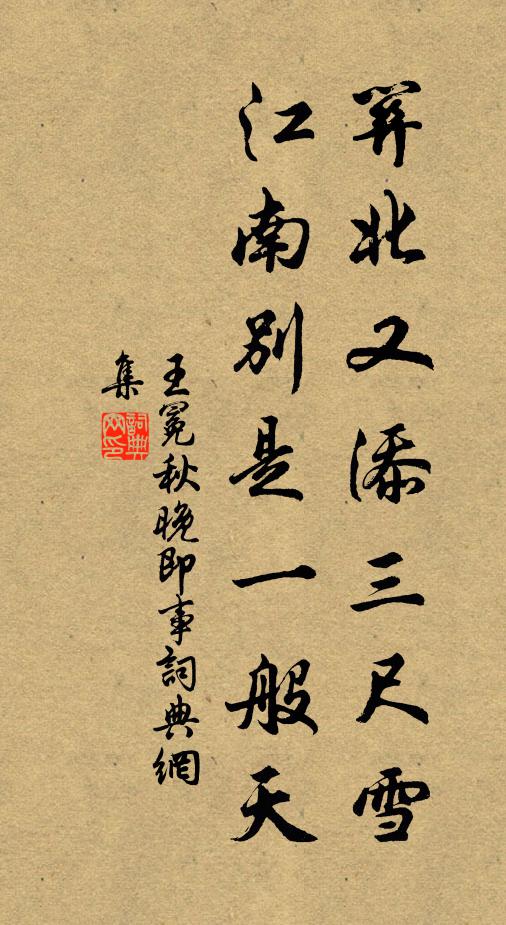 冀北又添三尺雪
江南別是一般天
王冕秋晚即事詞典網
集
詞典
网印